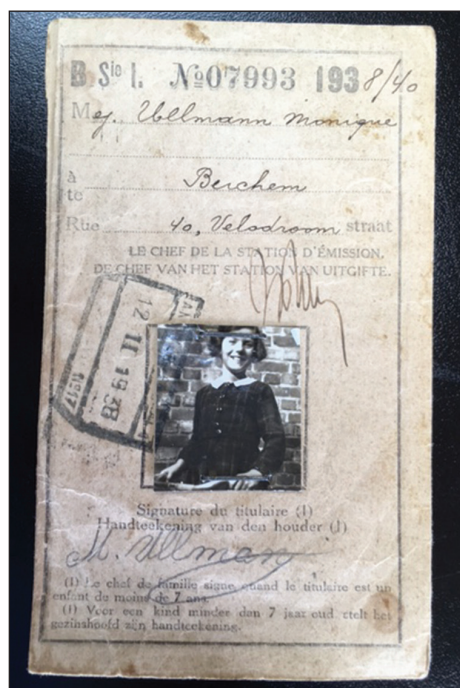 B Sie I. №07993 1938/40
Mej. Ullmann Monique
à
te Berchem
Rue 40, Velodroom straat
LE CHEF DE LA STATION D'ÉMISSION,
DE CHEF VAN HET STATION VAN UITGIFTE.
12 II 1938
N°17
Signature du titulaire (1)
Handteekening van den houder (1)
M. Ullmann
(1) Le chef de famille signe quand le titulaire est un
enfant de moins de 7 ans.
(1) Voor een kind minder dan 7 jaar oud stelt het
gezinshoofd zijn handteekening.